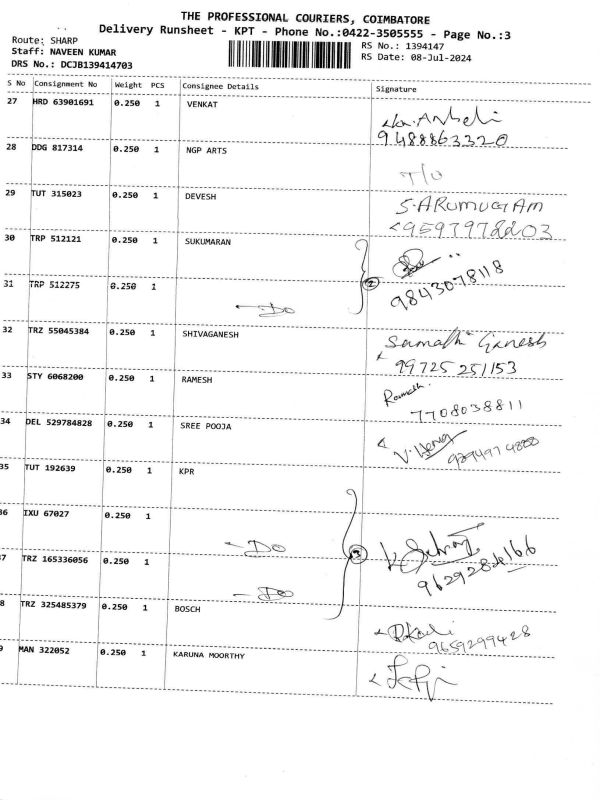 THE PROFESSIONAL COURIERS, COIMBATORE
Delivery Runsheet - KPT - Phone No.:0422-3505555 - Page No.:3
Route: SHARP
RS No.: 1394147
Staff: NAVEEN KUMAR
RS Date: 08-Jul-2024
DRS No.: DCJB139414703
S No Consignment No Weight PCS Consignee Details Signature
27 HRD 63901691 0.250 1 VENKAT
9488863320
28 DDG 817314 0.250 1 NGP ARTS
T/U
29 TUT 315023 0.250 1 DEVESH S. ARUMUGAM
30 TRP 512121 0.250 1 SUKUMARAN
31 TRP 512275 0.250 1
-Do 2 9843078118
32 TRZ 55045384 0.250 1 SHIVAGANESH Sumathi Ganesh
99725 251153
33 STY 6068200 0.250 1 RAMESH Ramesh.
7708038811
34 DEL 529784828 0.250 1 SREE POOJA
35 TUT 192639 0.250 1 KPR
36 IXU 67027 0.250 1
-Do 3
37 TRZ 165336056 0.250 1
-Do
38 TRZ 325485379 0.250 1 BOSCH
9659299428
39 MAN 322052 0.250 1 KARUNA MOORTHY